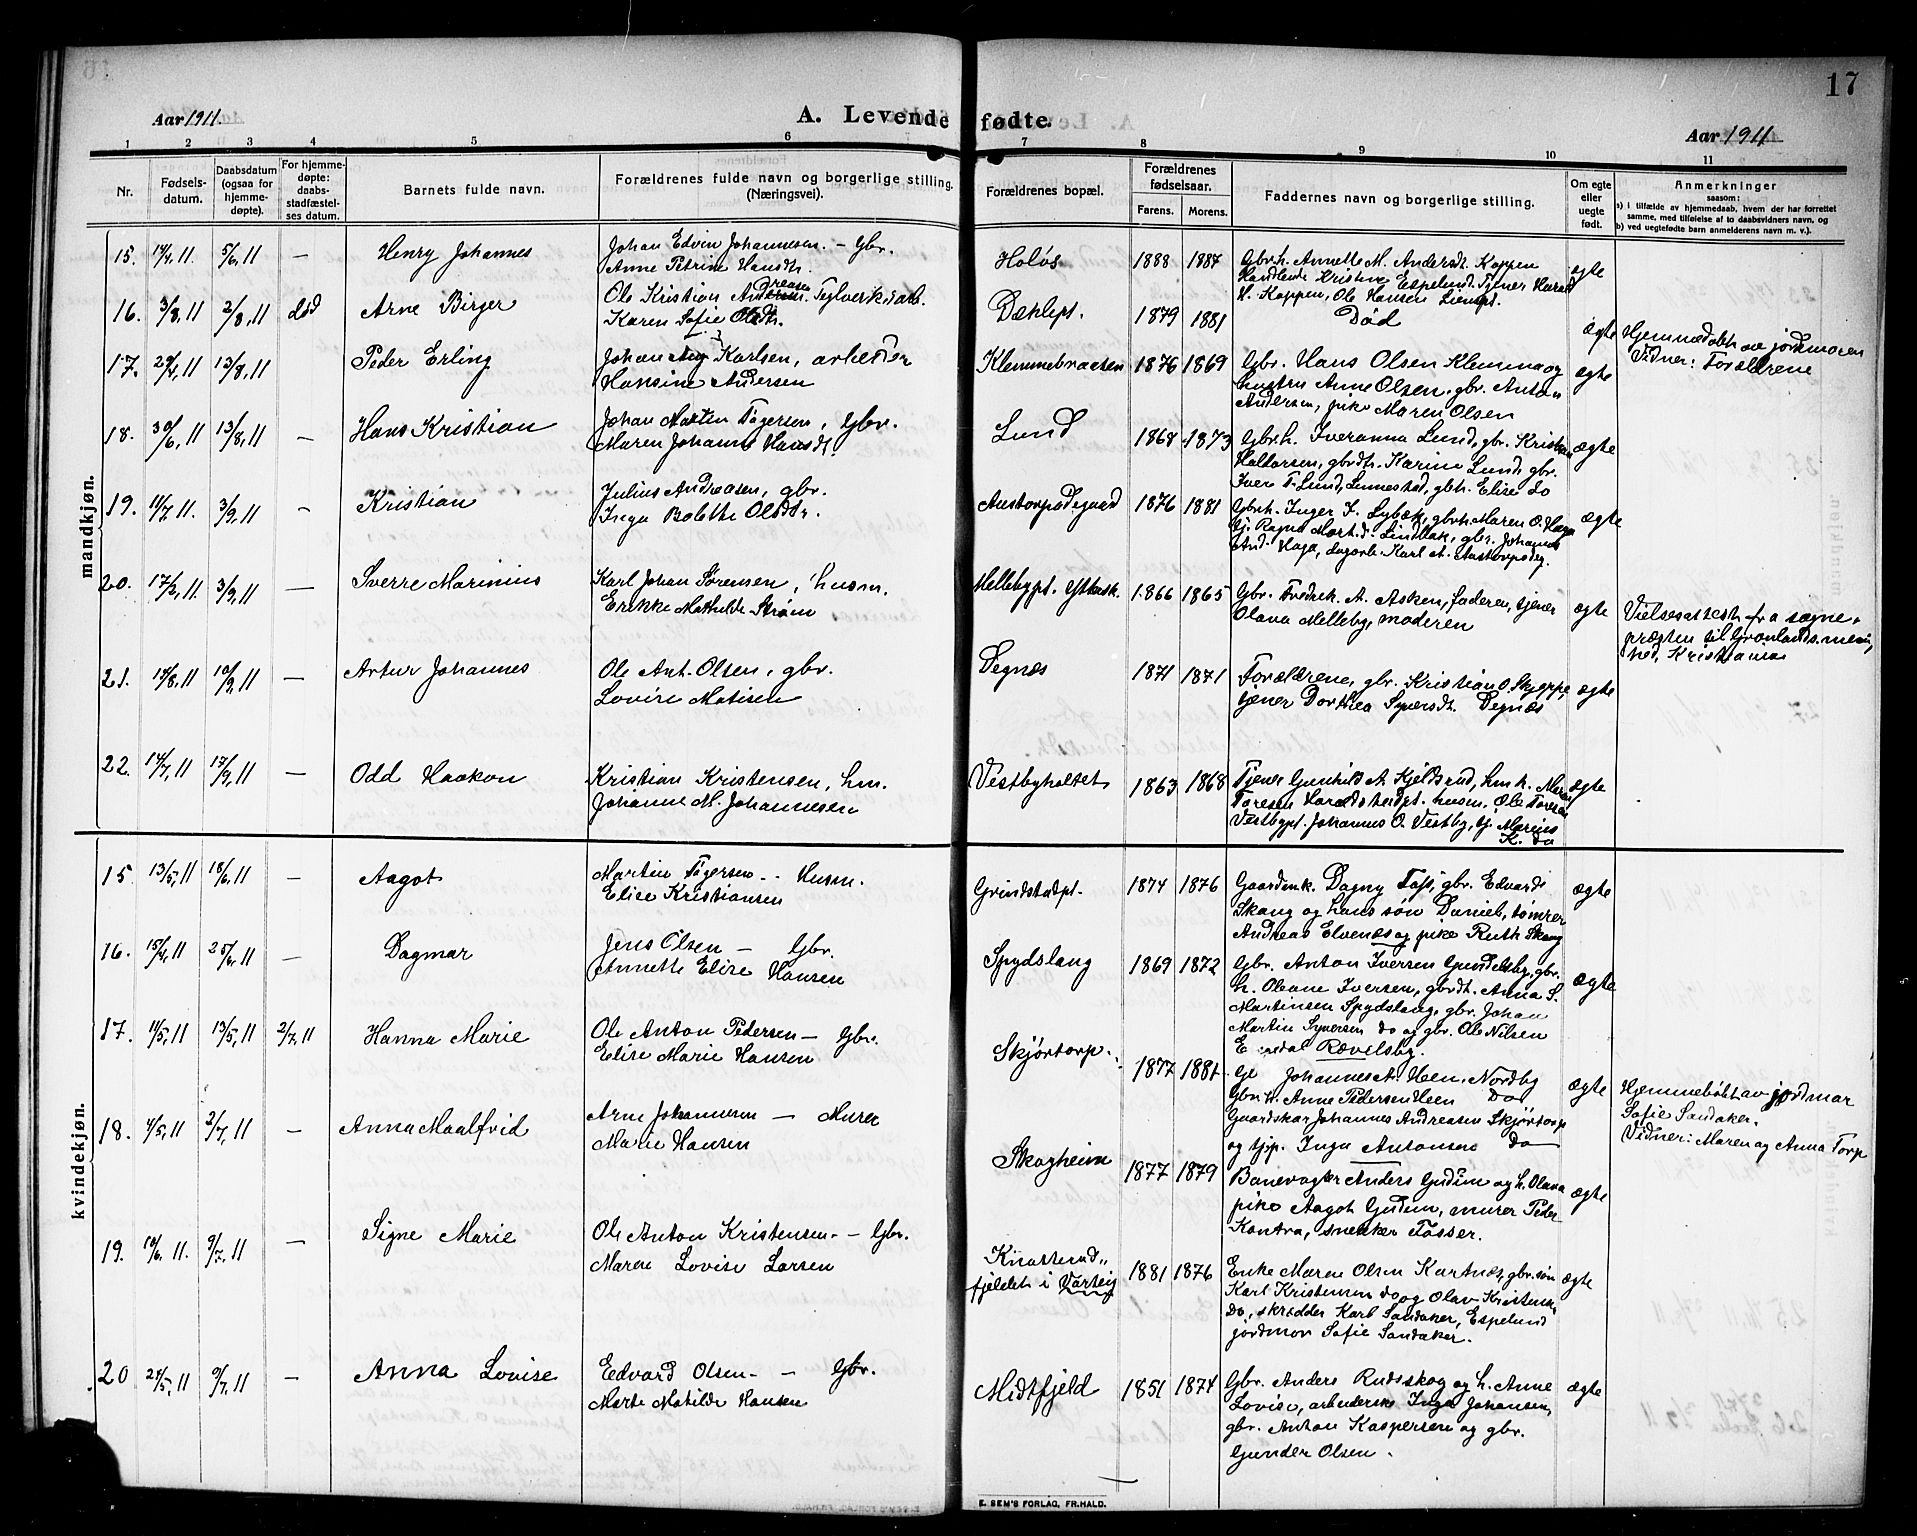 17
Aar 1911.
A. Levende fødte.
Aar 1911
1 2 3 4 5 6 7 8 9 10 11
Nr.
Fødsels-
datum.
Daabsdatum
(ogsaa for
hjemme-
døpte).
For hjemme-
døpte:
daabs-
stadfæstel-
ses datum.
Barnets fulde navn.
Forældrenes fulde navn og borgerlige stilling.
(Næringsvei).
Forældrenes bopæl.
Forældrenes
fødselsaar.
Farens. Morens.
Faddernes navn og borgerlige stilling.
Om egte
eller
uegte
født.
Anmerkninger
saasom:
a) i tilfælde av hjemmedaab, hvem der har forrettet
samme, med tilføielse af to daabsvidners navn, og
b) ved uegtefødte barn anmelderens navn m. v.).
mandkjøn.
15. 14/4, 11. 5/6, 11 — Henry Johannes
Johan Edvin Johannesen. — Gbr.
Anne Petrine Hansdtr.
Holøs 1888 1887
Gbr.h. Annette M. Andersdt. Koppen
Handlende Kristine Espelund. Tjener Harald
H. Koppen, Ole Hansen Lienpt.
ægte
16. 3/8, 11 2/8, 11 død Arne Birger
Ole Kristian Andreasen. Teglverksarb.
Karen Sofie Olsdtr.
Dæhlept. 1879 1881
Død
ægte
Hjemmedøbt av jordmoren
Vidner: Forældrene
17. 29/4, 11 13/8, 11 Peder Erling
Johan Aug Karlsen, arbeider
Hansine Andersen
Klemmebraaten 1876 1869
Gbr. Hans Olsen Klemma og
hustru Anne Olsen, gbr. Anton
Andersen, pike Maren Olsen
ægte
18. 30/6, 11 13/8, 11 — Hans Kristian
Johan Martin Tøgersen, Gbr.
Maren Johanne Hansdt.
Lund 1868 1873
Gbr.h. Iveranna Lund, gbr. Kristian
Haltorsen, gbrdtr. Karine Lund, gbr.
Iver T. Lund, Lunnestad, gbh. Elise do
ægte
19. 11/7, 11. 3/9, 11 — Kristian
Julius Andreasen, gbr.
Inga Bolette Olsdtr.
Austorpødegaard 1876 1881
Gbrh. Inger J. Lybæk, gbrh. Maren O. Haga
tj. Ragna Mart.d. Lindbak, gbr. Johannes
And. Haga, dagarb. Karl A. Austorpødeg.
ægte
20. 17/2, 11 3/9, 11 — Sverre Marinius
Karl Johan Sørensen, husm.
Erikke Mathilde Strøm
Mellebypt. Ytterask. 1866 1865
Gbr. Fredrik A. Asken, faderen, tjener
Olava Melleby, moderen
ægte
Vielsesattest fra sogne-
præsten til Grønlands menig-
hed, Kristiania
21. 14/8, 11 10/9, 11 — Artur Johannes
Ole Ant. Olsen, gbr.
Lovise Matisen
Degnæs 1871 1871
Forældrene, gbr. Kristian O. Skjeppe,
tjener Dorthea Syversdt. Degnæs
ægte
22. 14/7, 11 17/9, 11 — Odd Haakon
Kristian Kristensen, hm.
Johanne M. Johannesen
Vestbyholtet 1863 1868
Tjener Gunhild A. Kjeldsrud, hmk. Maren
Toresen Haraldstadpt. husm. Ole Toresen
Vestbypt. Johannes O. Vestby, tj. Marius
K. do
ægte
kvindekjøn.
15 13/5, 11 18/6, 11 — Aagot
Martin Tøgersen — Husm.
Elise Kristiansen
Grindstadpt. 1874 1876
Gaardmk. Dagny Foss, gbr. Edvard
Skaug og hans søn Daniel, tømrer
Andreas Elvenæs og pike Ruth Skaug
ægte
16. 15/4, 11 25/6, 11 — Dagmar
Jens Olsen — Gbr.
Annette Elise Hansen
Spydslaug 1869 1872
Gbr. Anton Iversen Gundelsby, gbr.
h. Oleane Iversen, gbrdt. Anna S.
Martinsen Spydslaug, gbr. Johan
Martin Syversen do og gbr. Ole Nilsen
Rævelsby.
ægte
17. 11/5, 11 13/5, 11 2/7, 11 Hanna Marie
Ole Anton Pedersen — Gbr.
Elise Marie Hansen
Skjørtorp. 1877 1881
Johannes A. Heen, Nordby
Gbr.h. Anne Pedersen Heen Do
Gaardskar Johannes Andreasen Skjørtorp
og tjp. Inga Antonsen Do
ægte
Hjemmedøbt av jordmor
Sofie Sandaker.
Vidner: Maren og Anna Torp
18. 4/5, 11 2/7, 11 — Anna Maalfrid
Arne Johannesen — Murer
Marie Hansen
Skogheim 1877 1879
Banevogter Anders Gudim og h. Olava
pike Aagot Gudim, murer Peder
Kantra, snekker Fosser.
ægte
19. 10/6, 11. 9/7, 11 — Signe Marie
Ole Anton Kristensen — Gbr.
Maren Lovise Larsen
Knatterud,,
fjeldet i Varteig 1881 1876
Enke Maren Olsen Kartnes, gbr.søn
Karl Kristensen do og Olav Kristensen
Do, skrædder Karl Sandaker, Espelund
jordmor Sofie Sandaker.
ægte
20 24/5, 11 9/7, 11 — Anna Lovise
Edvard Olsen — Gbr.
Marte Matilde Hansen
Midtfjeld 1851 1874
Gbr. Anders Rudsskog og h. Anne
Lovise, arbeiderske Inga Johansen,
gbr. Anton Kaspersen og gbr.
Gunder Olsen.
ægte
E. SEM'S FORLAG, FR.HALD.